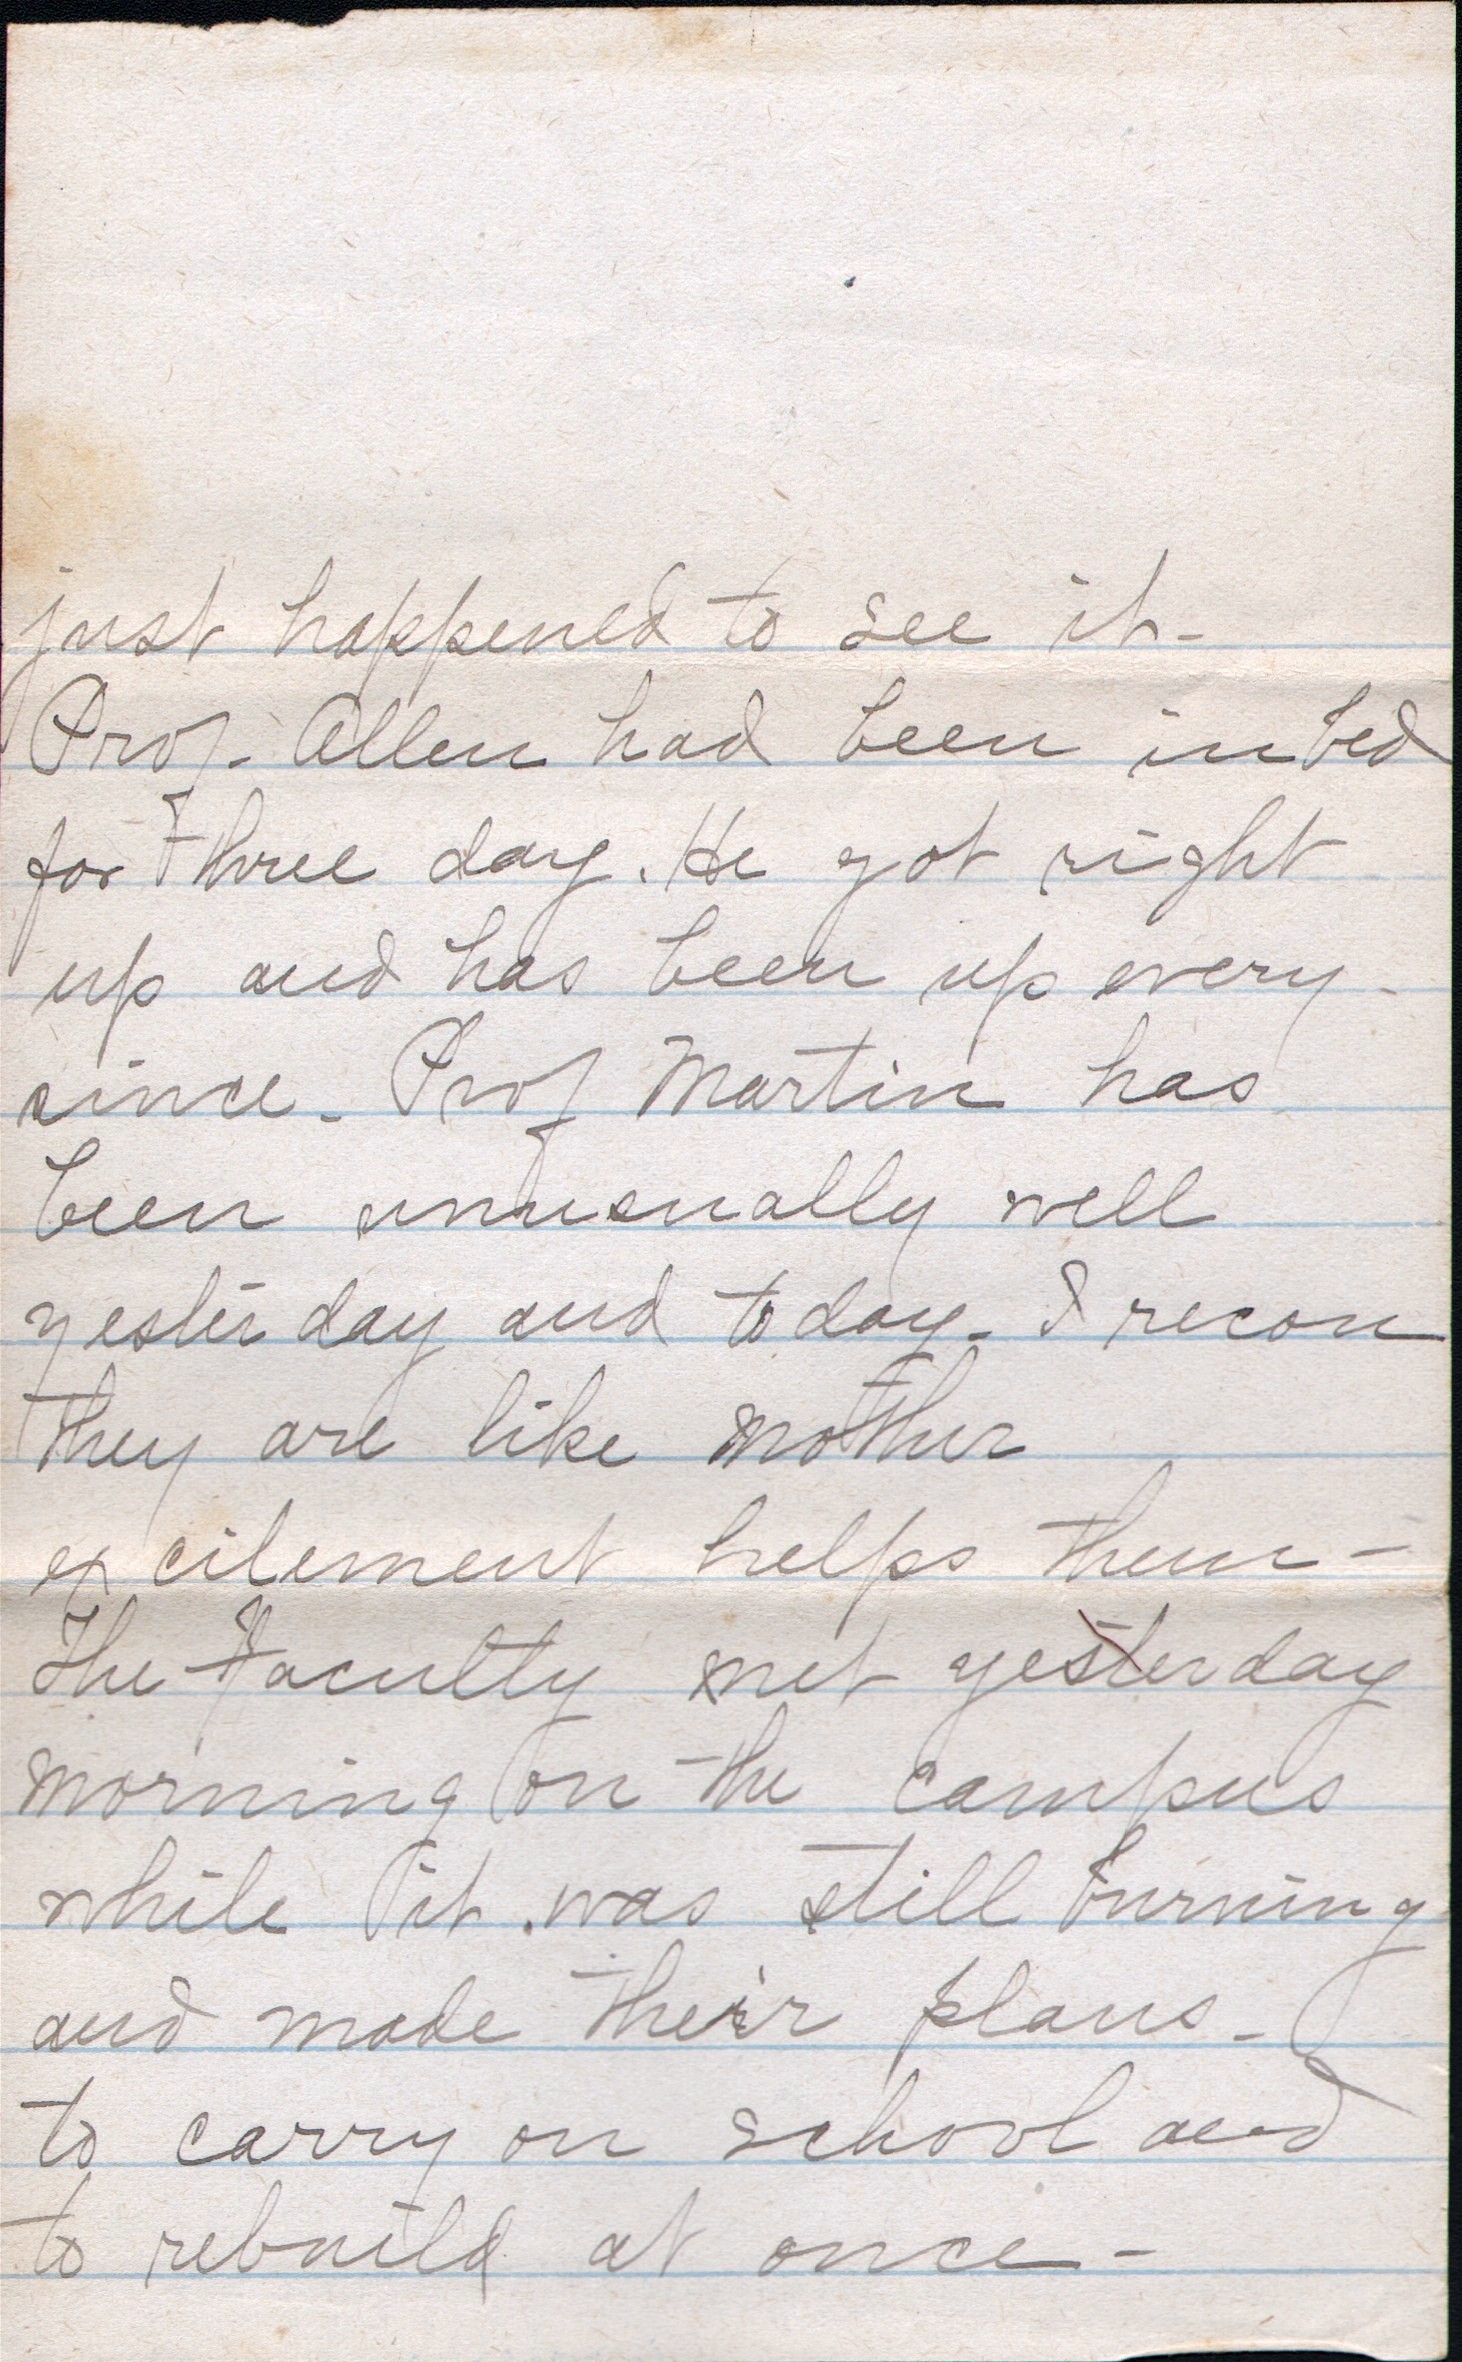 just happened to see it-
Prof. Allen had been in bed
for three day. He got right
up and has been up every
since. Prof Martin has
been unusually well
yesterday and today. I recon
they are like mother
excitement helps them-
The Faculty met yesterday
morning on the campus
while it was still burning
and made their plans-
to carry on school and
to rebuild at once-